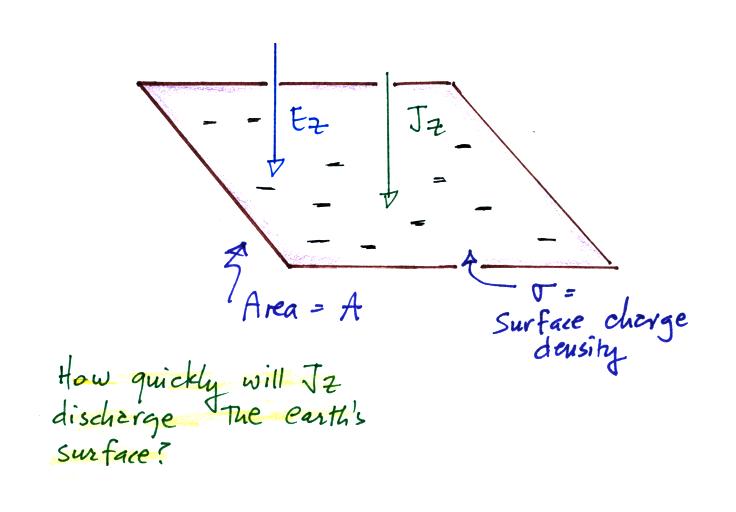 Ez
Jz
Area = A
σ =
Surface charge
density
How quickly will Jz
discharge the earth's
surface?